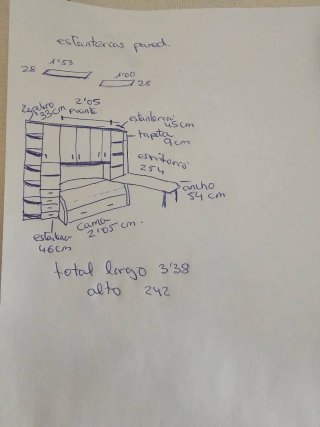 estanterias pared
1'53
28
1'00
25
2'05
puente
Zapatero
33cm
estanteria
45cm
tapeta
9cm
escritorio
254
ancho
54 cm
cama
2'05 cm.
46cm
total largo 3'38
alto 242